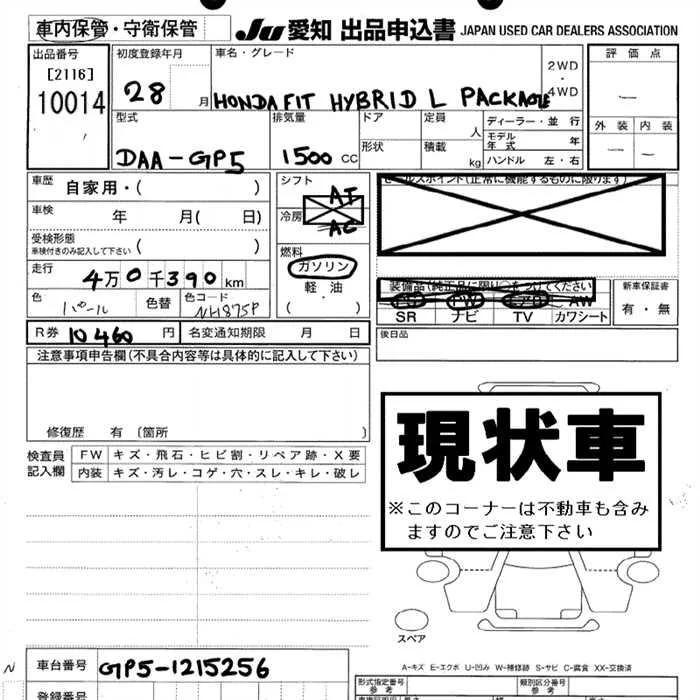 車内保管・守衛保管 JU 愛知 出品申込書 JAPAN USED CAR DEALERS ASSOCIATION
出品番号 初度登録年月 車名・グレード 評価点
[2116] 2WD
10014 28 月 HONDA FIT HYBRID L PACKAGE ・4WD
型式 排気量 ドア 定員 人 ディーラー・並行 外装 内装
モデル年式 年
DAA-GP5 1500 CC 形状 積載 kg ハンドル 左・右
車歴 自家用・( ) シフト AT
車検 年 月( 日) 冷房 AC
受検形態
車検付きのみ記入して下さい ( ) 燃料
走行 4万0千390km ガソリン
軽油
( )
装備品(純正品に限り○をつけてください 新車保証書
色 パール 色替 色コード NH875P AW 有・無
SR ナビ TV カワシート
R券 10460 円 名変通知期限 月 日 後日品
注意事項申告欄(不具合内容等は具体的に記入して下さい)
修復歴 有 〔箇所 〕
現状車
※このコーナーは不動車も含み
ますのでご注意下さい
検査員 FW キズ・飛石・ヒビ割・リペア跡・X要
記入欄 内装 キズ・汚レ・コゲ・穴・スレ・キレ・破レ
スペア
A-キズ E-エクボ U-凹み W-補修跡 S-サビ C-腐食 XX-交換済
N 車台番号 GP5-1215256
型式指定番号 参考 類別区分番号 参考
登録番号